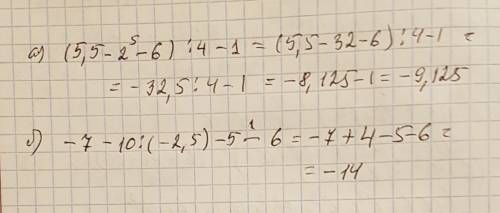 а) (5,5-2⁵-6):4-1 = (5,5-32-6):4-1 =
= -32,5:4-1 = -8,125-1 = -9,125
б) -7-10:(-2,5)-5¹-6 = -7+4-5-6 =
= -14